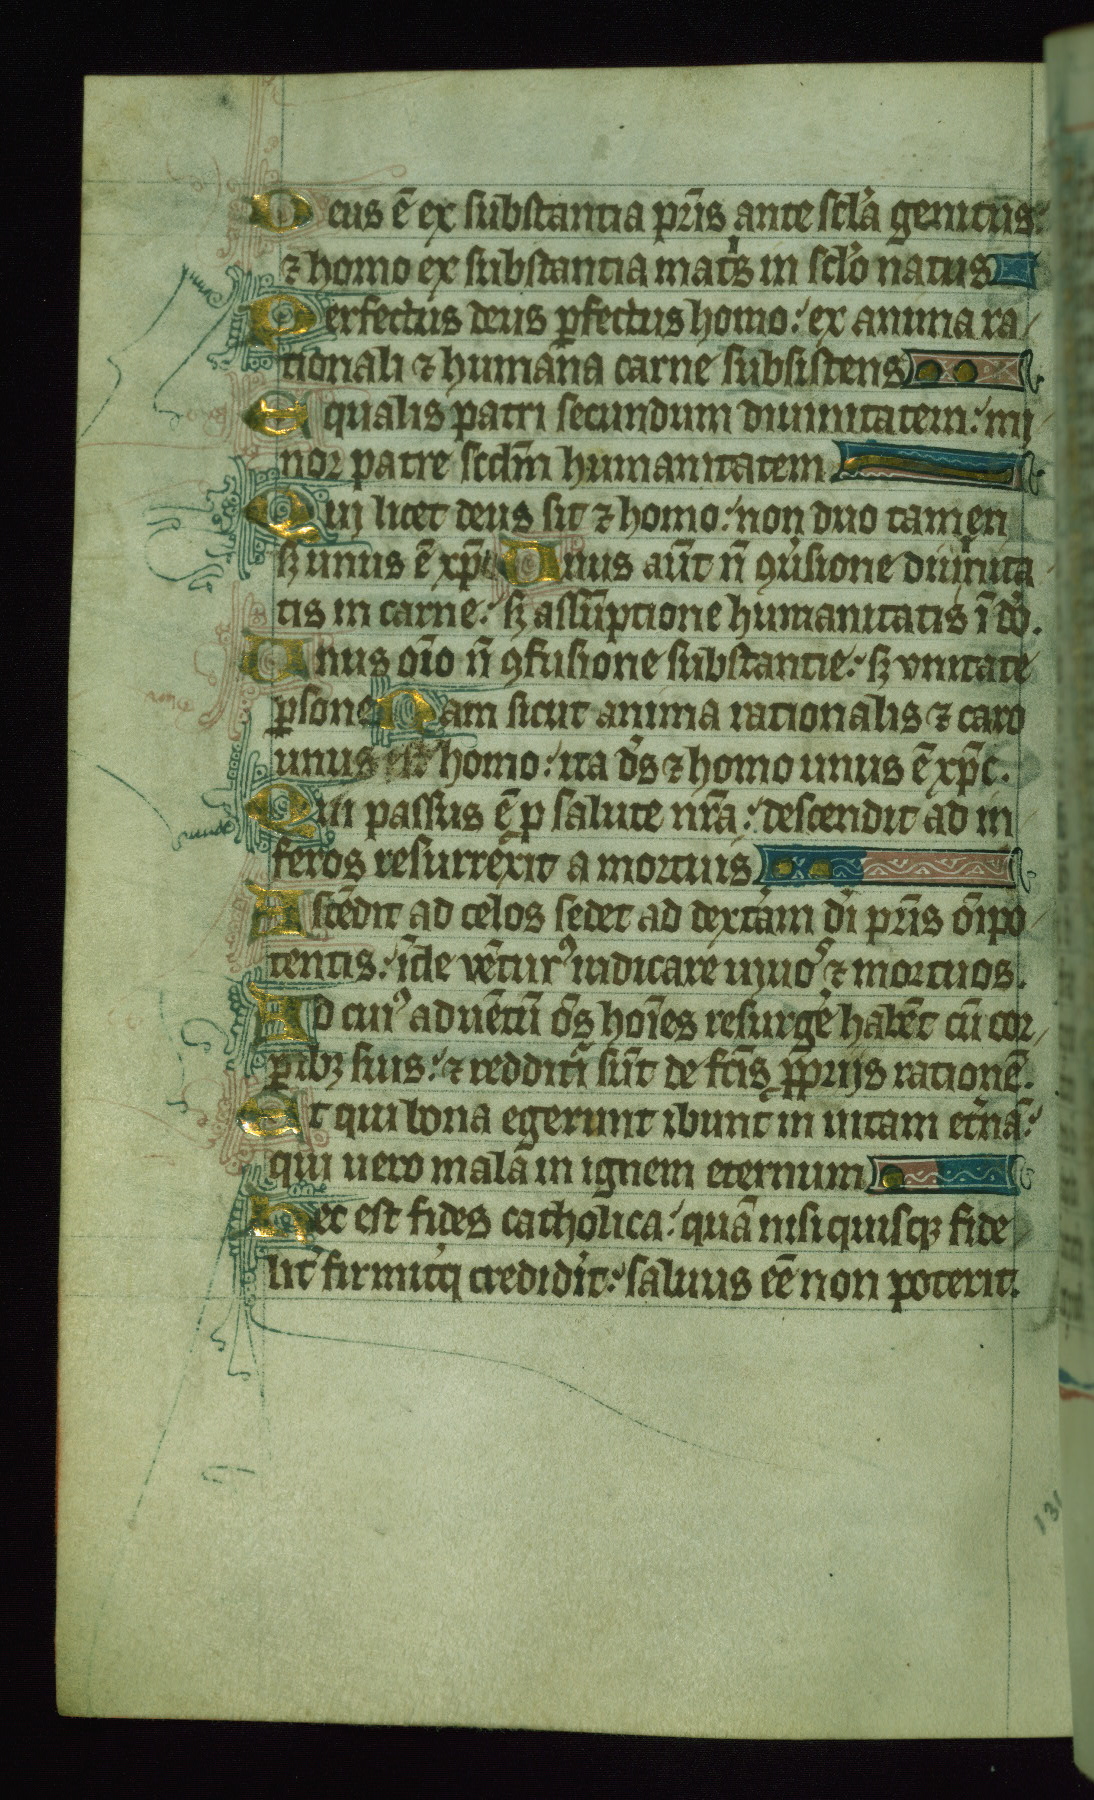 Deus ē ex substantia pr̄is ante scl̓a genitus:
⁊ homo ex substantia mat̓s in scl̓o natus
Perfectus deus ꝑfectus homo: ex anima ra
tionali ⁊ humana carne subsistens
Equalis patri secundum diuinitatem: mi
nor patre scdm̄ humanitatem
Qui licet deus sit ⁊ homo: non duo tamen
sꝫ unus ē xp̄c Unus aūt n̄ ꝯu̓sione diuinita
tis in carne: sꝫ assūptione humanitatis ī dō.
Unus oīo n̄ ꝯfusione substantie: sꝫ vnitate
ꝑsone Nam sicut anima rationalis ⁊ caro
unus est homo: ita ds̄ ⁊ homo unus ē xp̄c.
Qui passus ē ꝓ salute nr̄a: descendit ad in
feros resurrexit a mortuis
Ascēdit ad celos sedet ad dext̓am dī pr̄is oīpo
tentis: īde vēturꝰ iudicare uiuos ⁊ mortuos.
Ad cuiꝰ aduētū ōs hoīes resurge̓ habēt cū cor
ꝑibꝫ suis: ⁊ reddit̓i sūt de fc̄is ꝓprijs rationē.
Et qui bona egerunt ibunt in uitam et̓nā:
qui uero mala in ignem eternum
Hec est fides catholica: quā nisi quisqꝫ fide
lit̓ firmit̓qꝫ credid̓it: saluus eē non poterit.
131